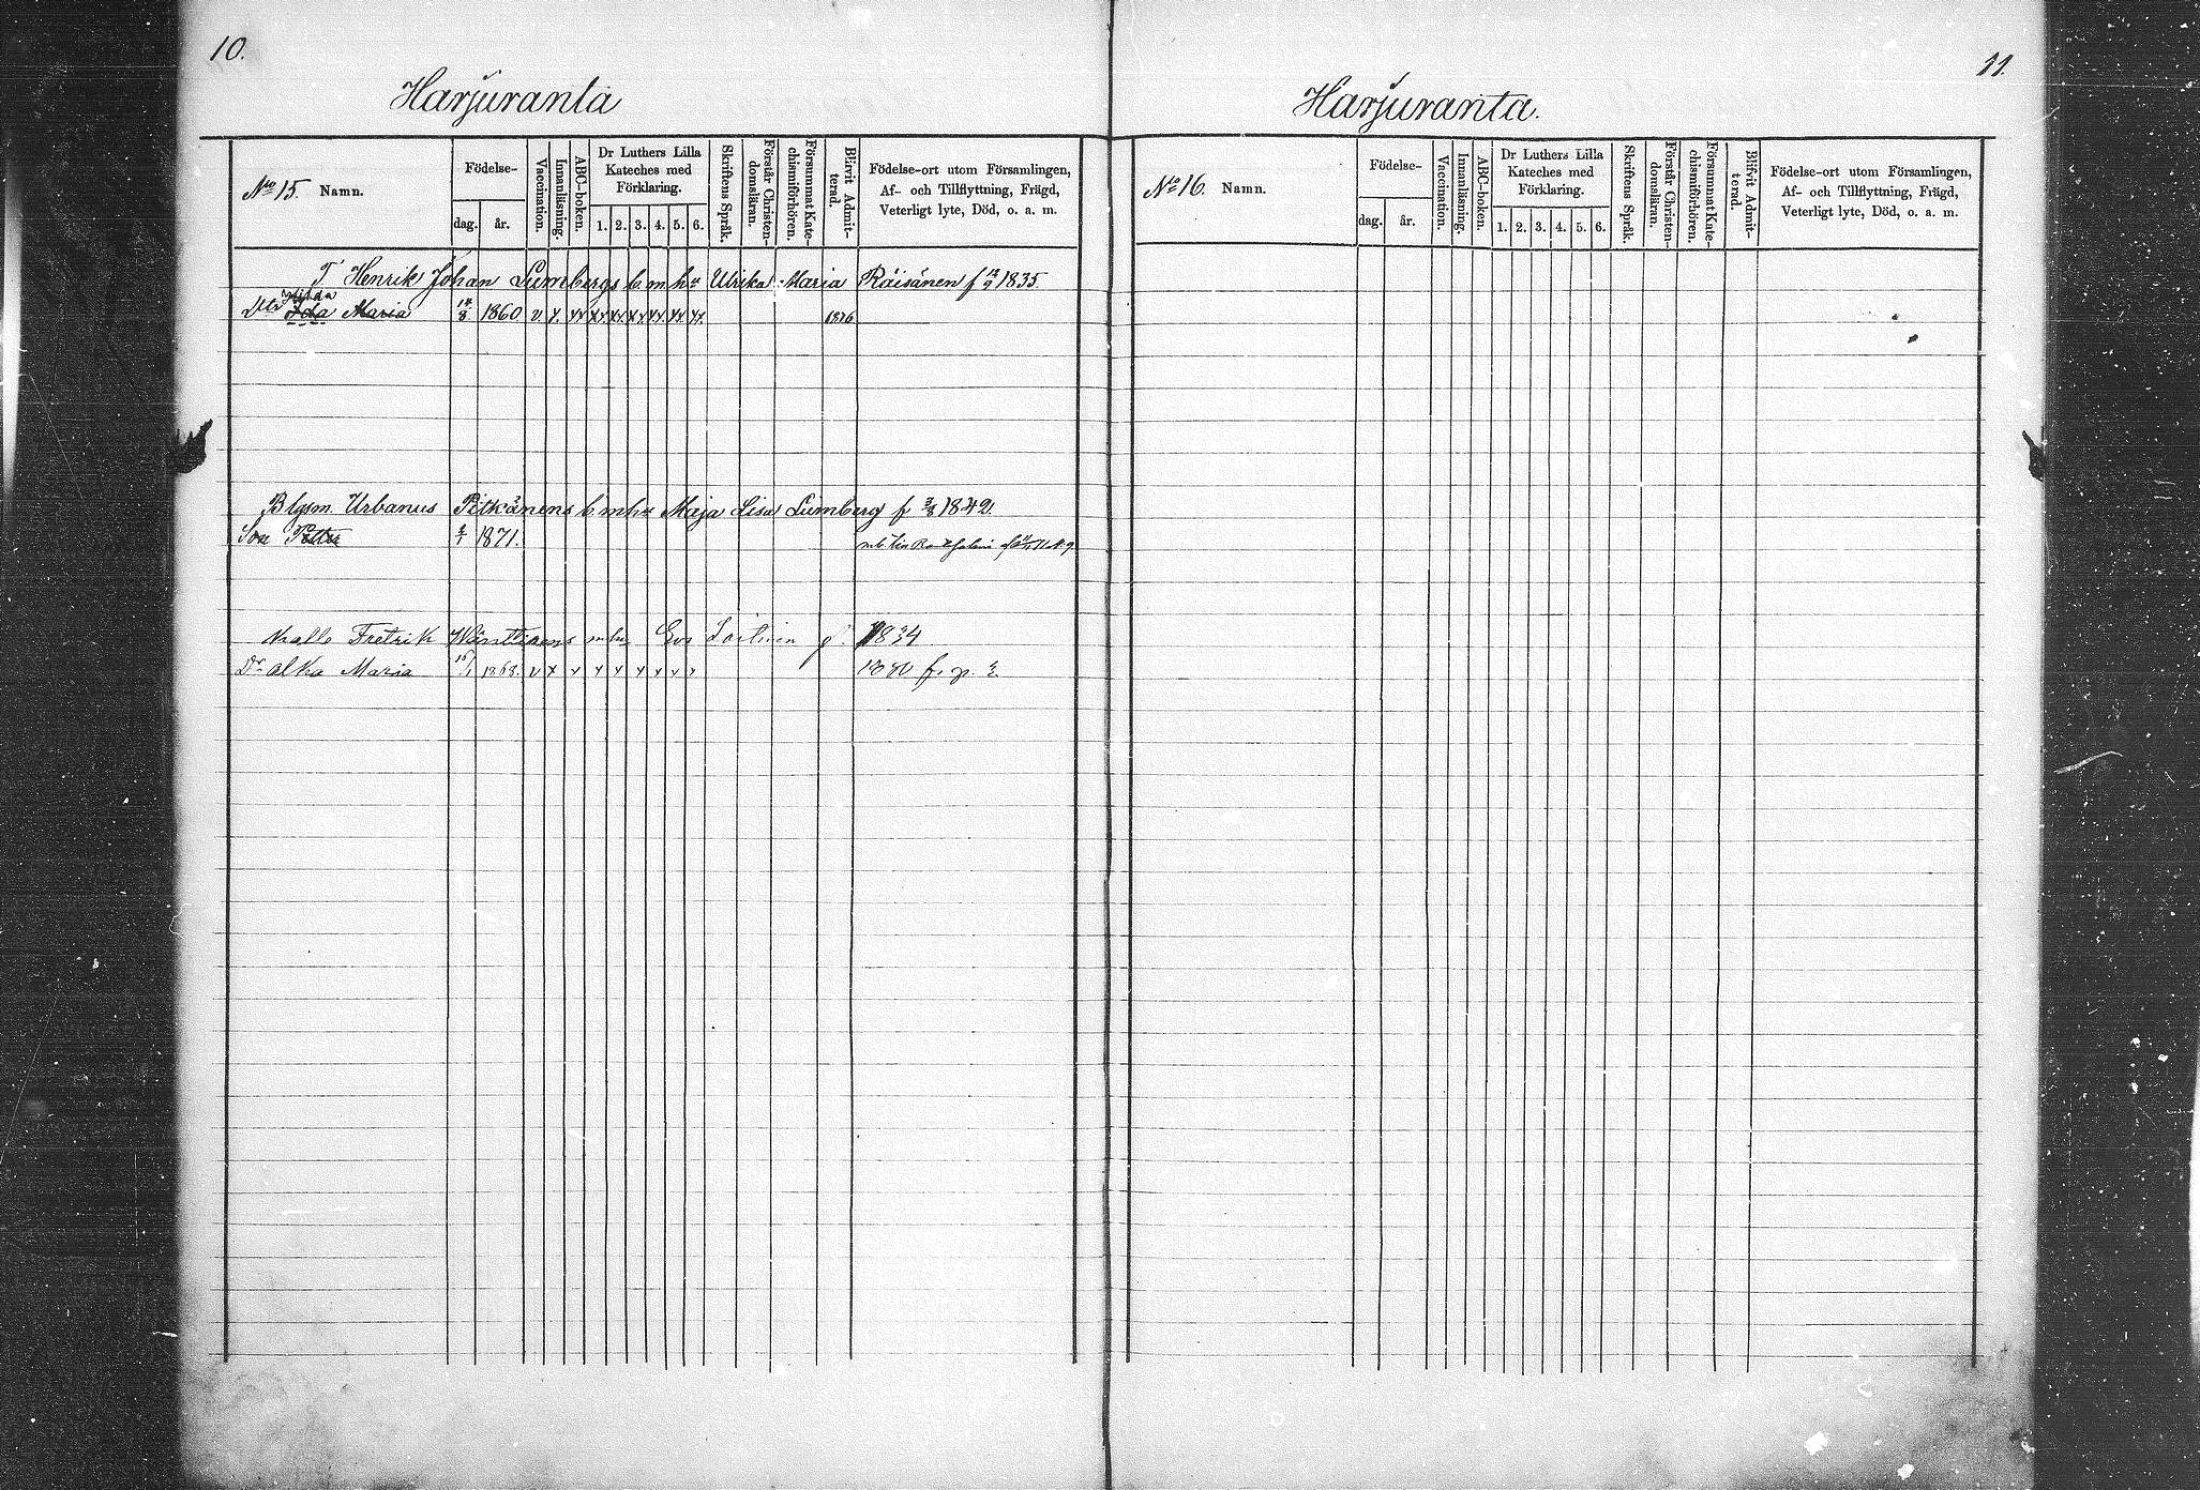 10.
Harjuranta
No 15. Namn.
Födelse-
dag. år.
Vaccination.
Innanläsning.
ABC-boken.
Dr Luthers Lilla Kateches med Förklaring.
1. 2. 3. 4. 5. 6.
Skriftens Språk.
Förstår Christendomsläran.
Försummat Katechismiförhören.
Blifvit Admitterad.
Födelse-ort utom Församlingen,
Af- och Tillflyttning, Frägd,
Veterligt lyte, Död, o. a. m.
T Henrik Johan Lumbergs b m hu Ulrika Maria Räisänen f 12/9 1835.
Hilda
Dtr Ida Maria 14/8 1860 v. x. xx xx xx xx xx xx xx 1876
Blgsm. Urbanus Pitkänens b. m hu Maja Lisa Lumberg f 3/8 1842.
Son Petter 2/1 1871.
Kalle Fretrik mhu Eva f. 1834
Dr Alka Maria 16/1 1868. v x x x x x x x x 1880
11.
Harjuranta.
No 16. Namn.
Födelse-
dag. år.
Vaccination.
Innanläsning.
ABC-boken.
Dr Luthers Lilla Kateches med Förklaring.
1. 2. 3. 4. 5. 6.
Skriftens Språk.
Förstår Christendomsläran.
Försummat Katechismiförhören.
Blifvit Admitterad.
Födelse-ort utom Församlingen,
Af- och Tillflyttning, Frägd,
Veterligt lyte, Död, o. a. m.